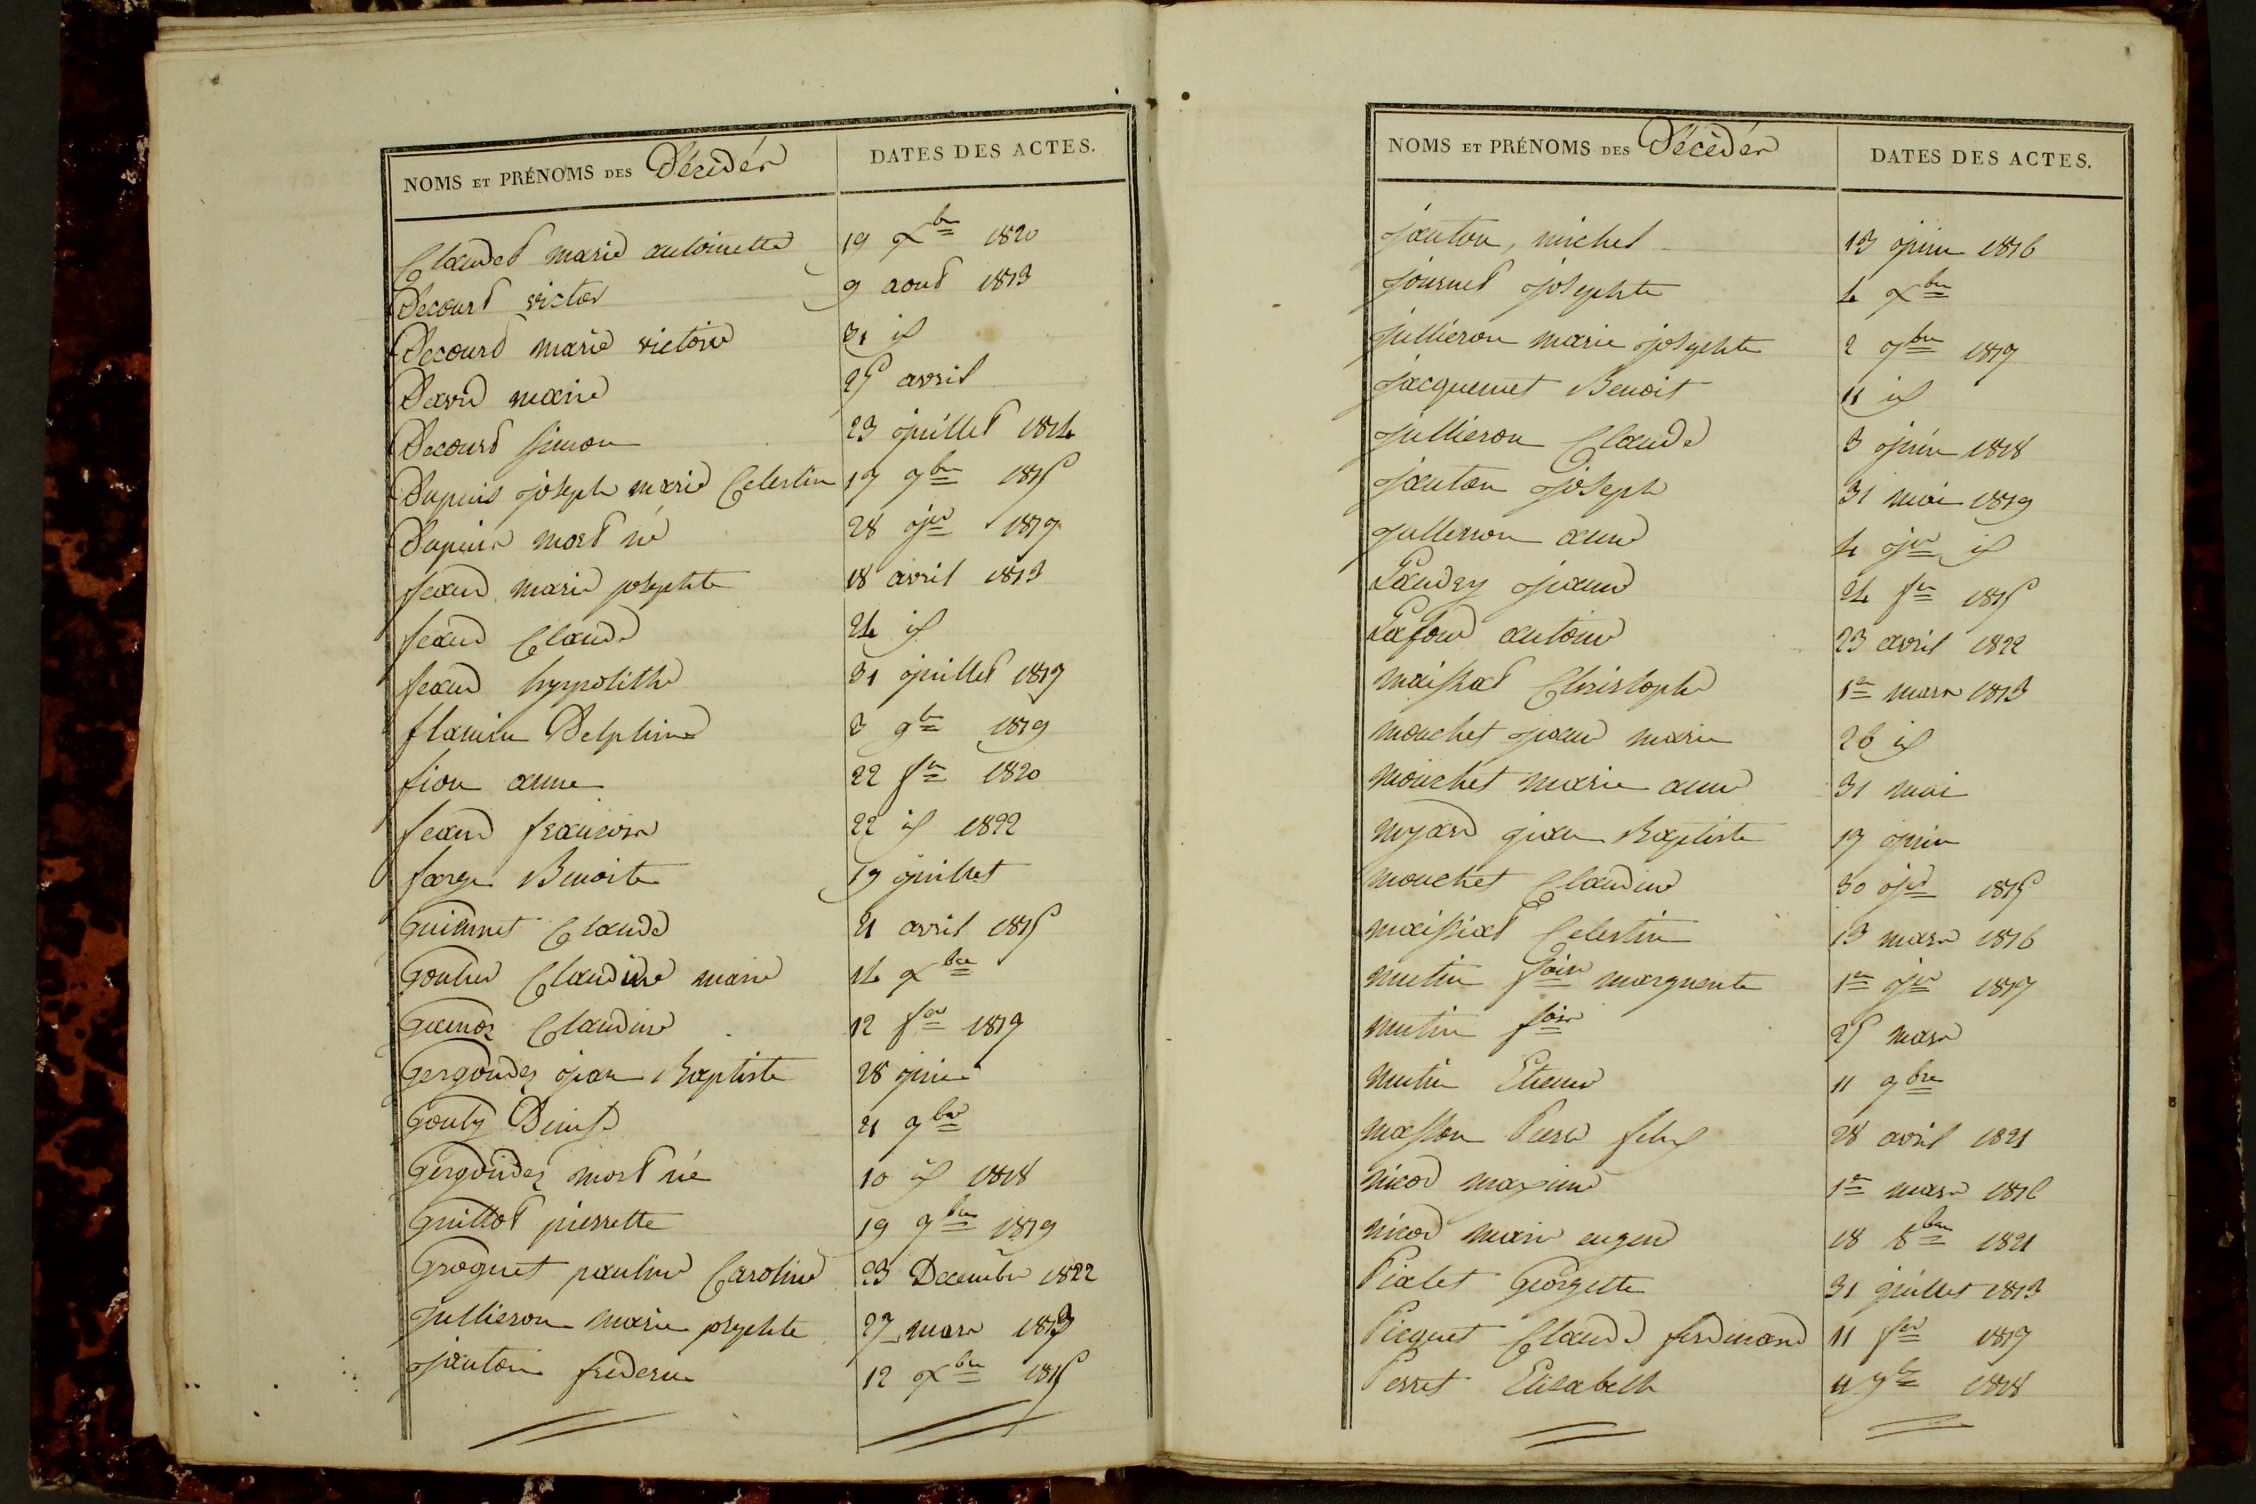 NOMS ET PRÉNOMS DES Décédés DATES DES ACTES.
Claudet marie antoinette 19 Xbre 1820
Decourt victor 9 aout 1813
Decourt marie victoire 31 id
David marie 25 avril
Decourt Simon 23 juillet 1814
Dupuis joseph marie Celestin 17 9bre 1815
Dupuis mort né 28 jer 1817
feaud marie josephte 18 avril 1813
feaud Claude 24 id
feaud hyppolithe 31 juillet 1817
flamin Delphine 2 9bre 1819
fion anne 22 fer 1820
feaud francois 22 id 1822
farge Benoite 17 juillet
Guiennet Claude 21 avril 1815
Goulie Claudine marie 14 Xbre
Claudine 12 fer 1817
Gergondez jean Baptiste 28 juin
Gouly Denis 21 9bre
Gergondez mort né 10 id 1818
Guillot pierrette 19 9bre 1819
Groguet pauline Caroline 23 Decembre 1822
Jullieron marie josephte 27 mars 1813
Janton frederic 12 Xbre 1815
NOMS ET PRÉNOMS DES Décédés DATES DES ACTES.
Janton, michel 13 juin 1816
Journet josephte 4 Xbre
Jullieron marie josephte 2 9bre 1817
Jacquemet Benoit 11 id
Jullieron Claude 3 juin 1818
Janton joseph 31 mai 1819
Jullieron anne 4 jer id
Landry jeanne 24 fer 1815
Lafond antoine 23 avril 1822
maissiat Christophe 1er mars 1813
mouchet jeanne marie 26 id
mouchet marie anne 31 mai
moyard jean Baptiste 17 juin
mouchet Claudine 30 jer 1815
maissiat Celestin 13 mars 1816
mutin fois marguerite 1er jer 1817
mutin fois 25 mars
mutin Etienne 11 9bre
masson Pierre felix 28 avril 1821
nicod maxime 1er mars 1816
nicod marie eugene 18 8bre 1821
Pialet Georgette 31 juillet 1813
Picquet Claude ferdinand 11 fer 1817
Perret Elisabeth 11 7bre 1818